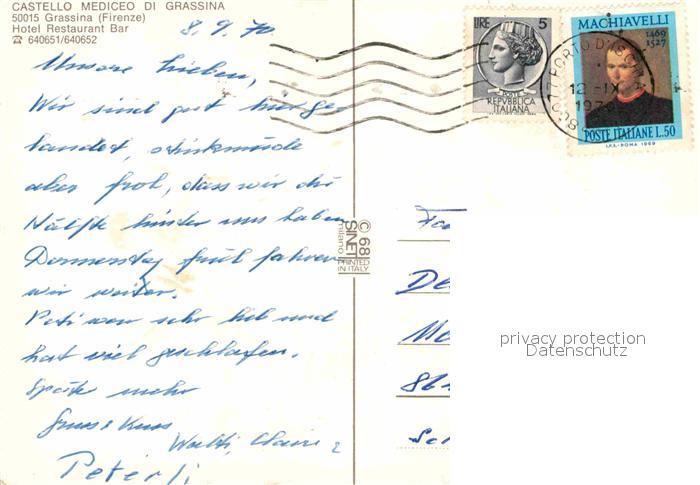 CASTELLO MEDICEO DI GRASSINA
50015 Grassina (Firenze)
Hotel Restaurant Bar
☎ 640651/640652
8.9.70
Unsere Lieben,
Wir sind gut hier ge
landet, stinkmüde
aber froh, dass wir die
Hälfte hinter uns haben
Donnerstag früh fahren
wir weiter.
Peti war sehr lieb und
hat viel geschlafen.
Später mehr
Gruss & Kuss
Walti, Claire &
Peterli
© 68
SINET
milano
PRINTED
IN ITALY
LIRE 5
POSTE
REPVBBLICA
ITALIANA
MACHIAVELLI
1469
1527
POSTE ITALIANE L.50
I.P.S.-ROMA 1969
PORTO D'ISCHIA
12-IX
197
Fa
De
Me
86
Sc
privacy protection
Datenschutz